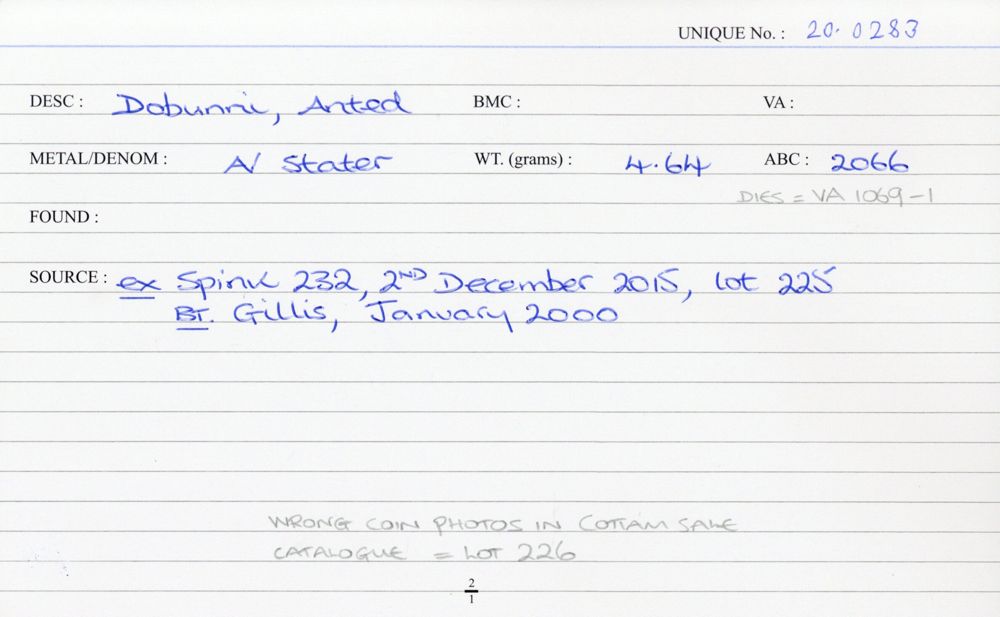 UNIQUE No. : 20. 0283
DESC : Dobunni, Anted BMC : VA :
METAL/DENOM : A/ Stater WT. (grams) : 4.64 ABC : 2066
DIES = VA 1069-1
FOUND :
SOURCE : ex Spink 232, 2ND December 2015, lot 225
BT. Gillis, January 2000
WRONG COIN PHOTOS IN COTTAM SALE
CATALOGUE = LOT 226
2
1